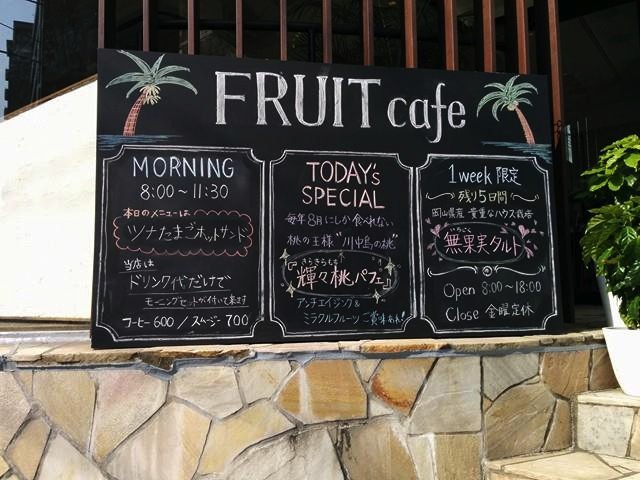 FRUIT cafe
MORNING
8:00~11:30
本日のメニューは
ツナたまごホットサンド
当店は
ドリンク代だけで
モーニングセットが付いて来ます
コーヒー600/スムージー700
TODAY's
SPECIAL
毎年8月にしか食べれない
桃の王様"川中島の桃"
きらきらもも
『輝々桃パフェ』
アンチエイジング&
ミラクルフルーツご賞味あれ!
1week限定
残り5日間!
岡山県産 貴重なハウス栽培
いちじく
無果実タルト
Open 8:00~18:00
Close 金曜定休